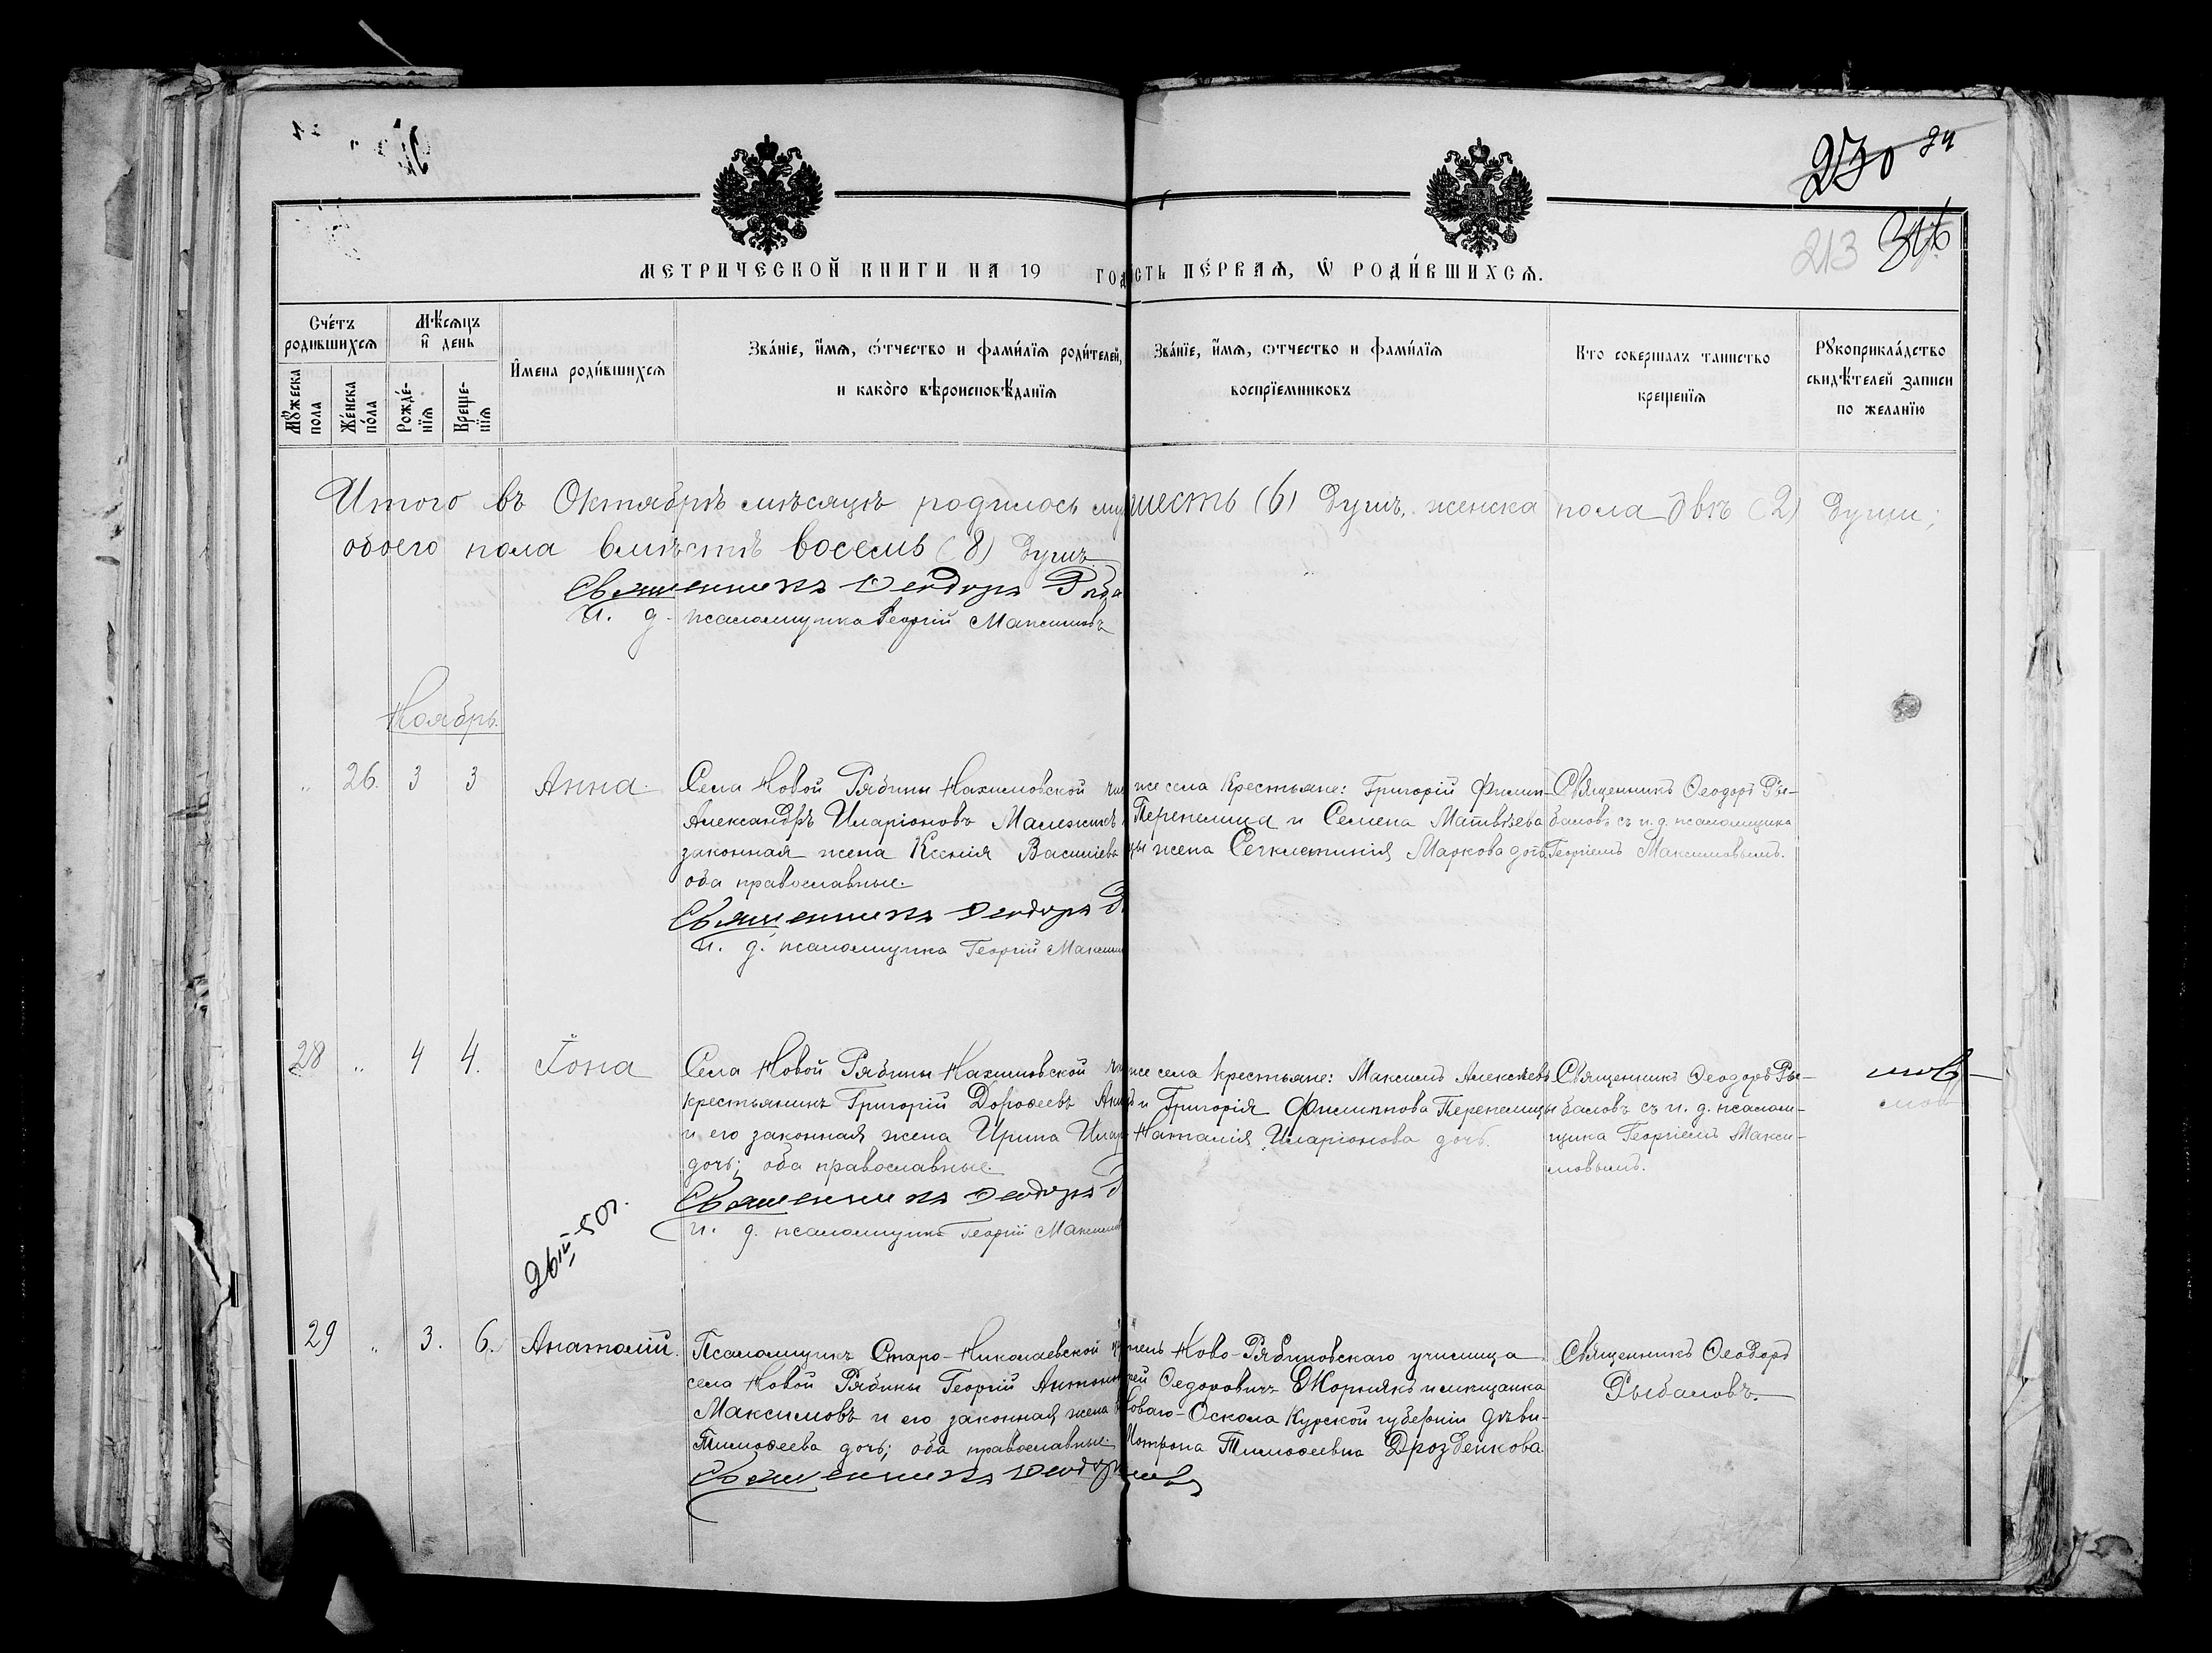 230 24
213 316
МЕТРИЧЕСКОЙ КНИГИ НА 19 ГОД
СТЬ ПЕ́РВАѦ, Ѡ РОДИ́ВШИХСѦ.
Сче́тъ родившихсѧ
Мꙋжеска пола
Же́нска по́ла
Мѣ́сѧцъ и҆ день
Рожде́-нїѧ
Креще-нїѧ
И҆мена роди́вшихсѧ
Зва́нїе, и҆́мѧ, ѻ҆́тчество и фами́лїѧ роди́телей, и како́го вѣроисповѣ́данїѧ
Зва́нїе, и҆́мѧ, ѻтчество и фами́лїѧ воспрїемниковъ
Кто совершалъ таинство крещенїѧ
Рꙋкоприкла́дство свидѣ́телей записи по желанїю
Итого въ Октябрѣ мѣсяцѣ родилось му шесть (6) душъ, женска пола двѣ (2) души;
обоего пола вмѣстѣ восемь (8) душъ.
Священникъ Ѳеодоръ Рыба
И. д. псаломщика Георгій Максимовъ
Ноябрь.
" 26. 3 3 Анна.
Села Новой Рябины Нахимовской
Александръ Иларіоновъ Малежикъ
законная жена Ксенія Васильева
оба православные.
Священникъ Ѳеодоръ
И. д. псаломщика Георгій Максим
же села Крестьяне: Григорій Филип-
Перепелица и Семена Матвѣева
жена Сегклитикія Маркова дочь.
Священникъ Ѳеодоръ Ры-
баловъ съ и. д. псаломщика
Георгіемъ Максимовымъ.
28 " 4 4. Іона
Села Новой Рябины Нахимовской
крестьянинъ Григорій Дороѳеевъ
и его законная жена Ирина Илар
дочь; оба православные.
Священникъ Ѳеодоръ
И. д. псаломщика Георгій Максимов
же села крестьяне: Максимъ Алексѣевъ
и Григорія Филиппова Перепелицы
Наталія Иларіонова дочь.
Священникъ Ѳеодоръ Ры-
баловъ съ и. д. псалом-
щика Георгіемъ Макси-
мовымъ.
29 " 3. 6. Анатолій.
Псаломщикъ Старо-Николаевской
села Новой Рябины Георгій Антонов
Максимовъ и его законная жена
Тимоѳеева дочь; оба православные.
Священникъ Ѳеодоръ
Ново-Рябиновскаго училища
Ѳедоровичъ Корнякъ и мѣщанка
Новаго-Оскола Курской губерніи дѣви-
Матрона Тимоѳеевна Дрозденкова.
Священникъ Ѳеодоръ
Рыбаловъ.